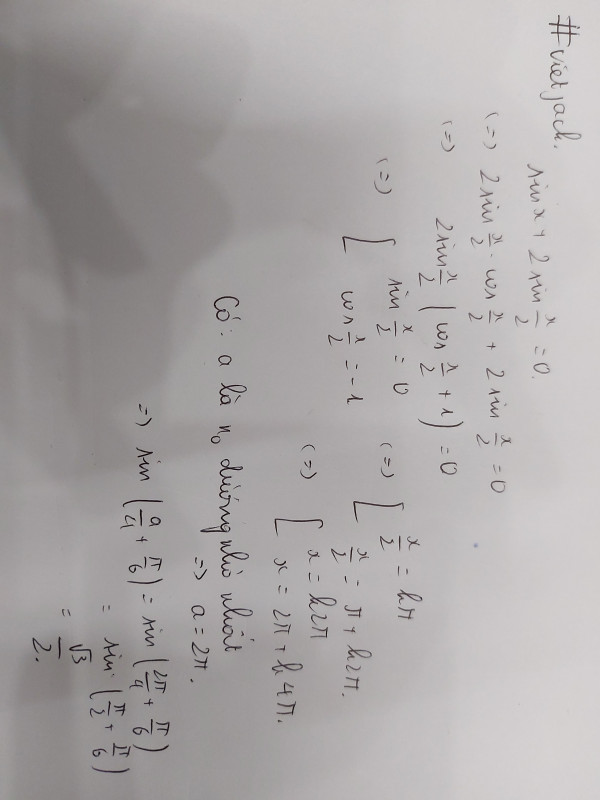 #vietjack.
sin x + 2 sin x/2 = 0.
(=) 2 sin x/2 . cos x/2 + 2 sin x/2 = 0
(=) 2 sin x/2 (cos x/2 + 1) = 0
(=) [ sin x/2 = 0 (=) [ x/2 = kπ
cos x/2 = -1 x/2 = π + k2π.
(=) [ x = k2π
x = 2π + k4π.
Có: a là n₀ dương nhỏ nhất
=> a = 2π.
=> sin (a/4 + π/6) = sin (2π/4 + π/6)
= sin (π/2 + π/6)
= √3/2.